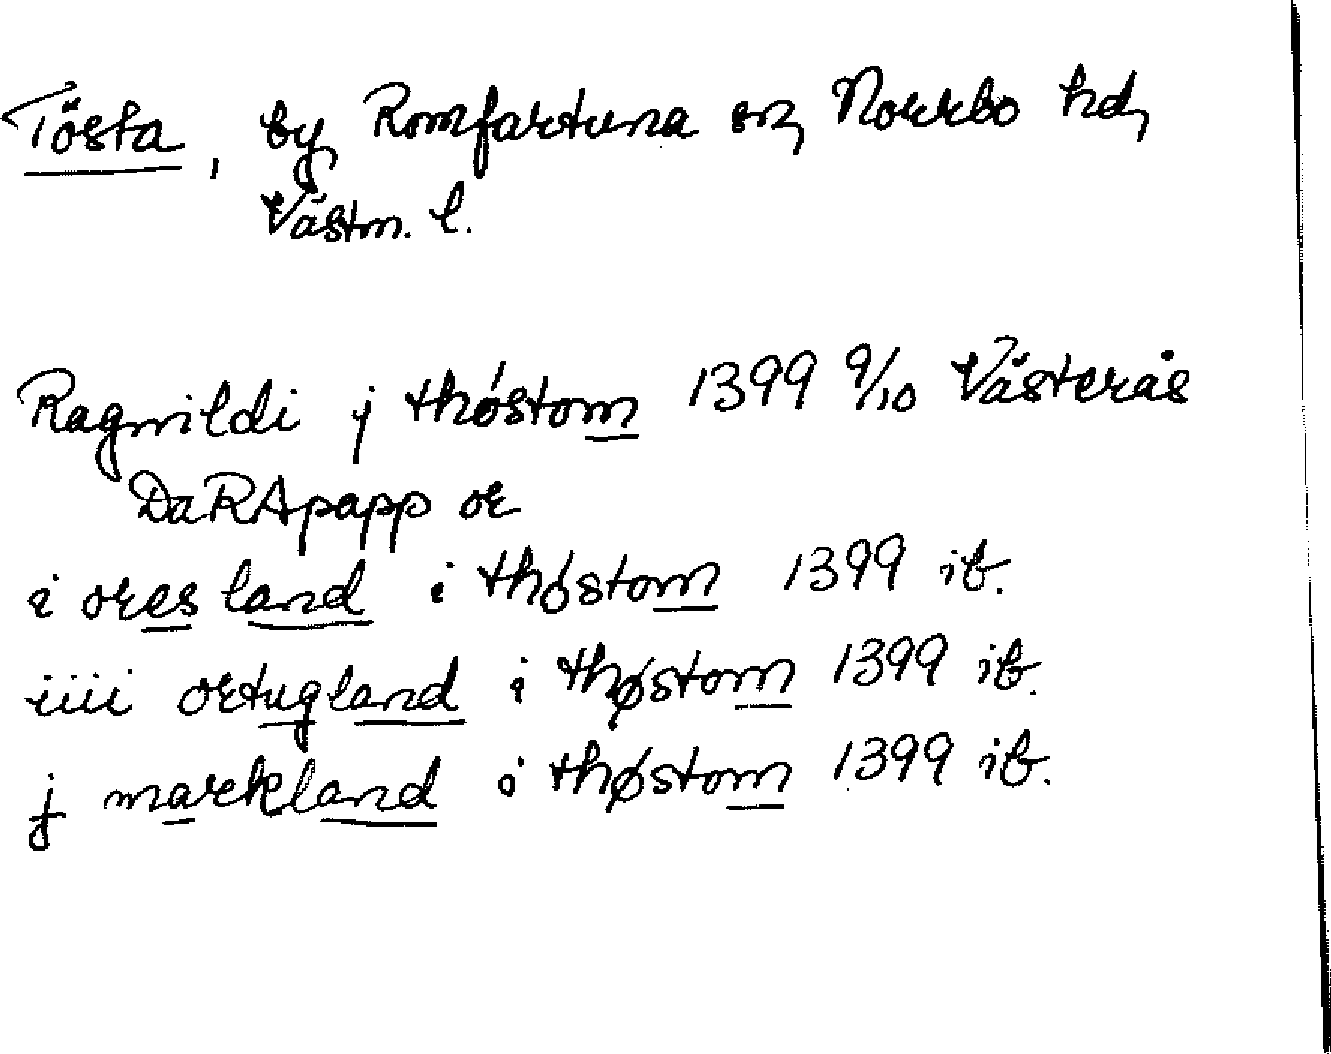 Tösta, by, Romfartuna sn, Norrbo hd,
Västm. l.
Ragnvildi j thøstom 1399 9/10 Västerås
DaRApapp or
i ores land i thøstom 1399 ib.
iiii ortugland i thøstom 1399 ib.
j markland i thøstom 1399 ib.